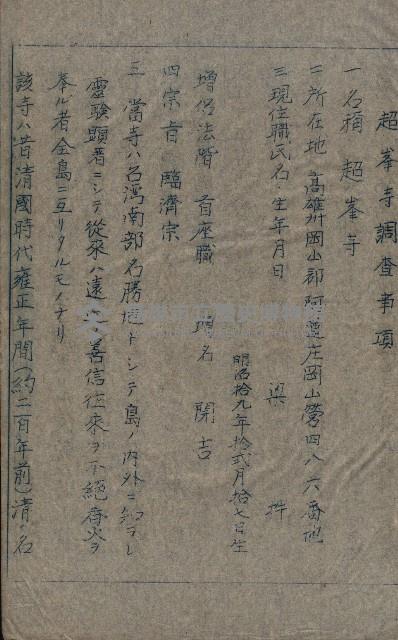 超峯寺調査事項
一 名稱 超峯寺
二 所在地 高雄州岡山郡阿蓮庄岡山營四八六番地
三 現住職氏名・生年月日 梁 拌
明治拾九年拾弐月拾七日生
增侶法階 首座職 現名 開吉
四 宗旨 臨濟宗
三 當寺ハ台湾南部名勝地トシテ島ノ内外ニ知ラレ
靈験顕著ニシテ從來ハ遠 善信往來ヲ不絶香火ヲ
奉ル者全島ニ亙リタルモノナリ
該寺ハ昔清國時代雍正年間（約二百年前）清・名